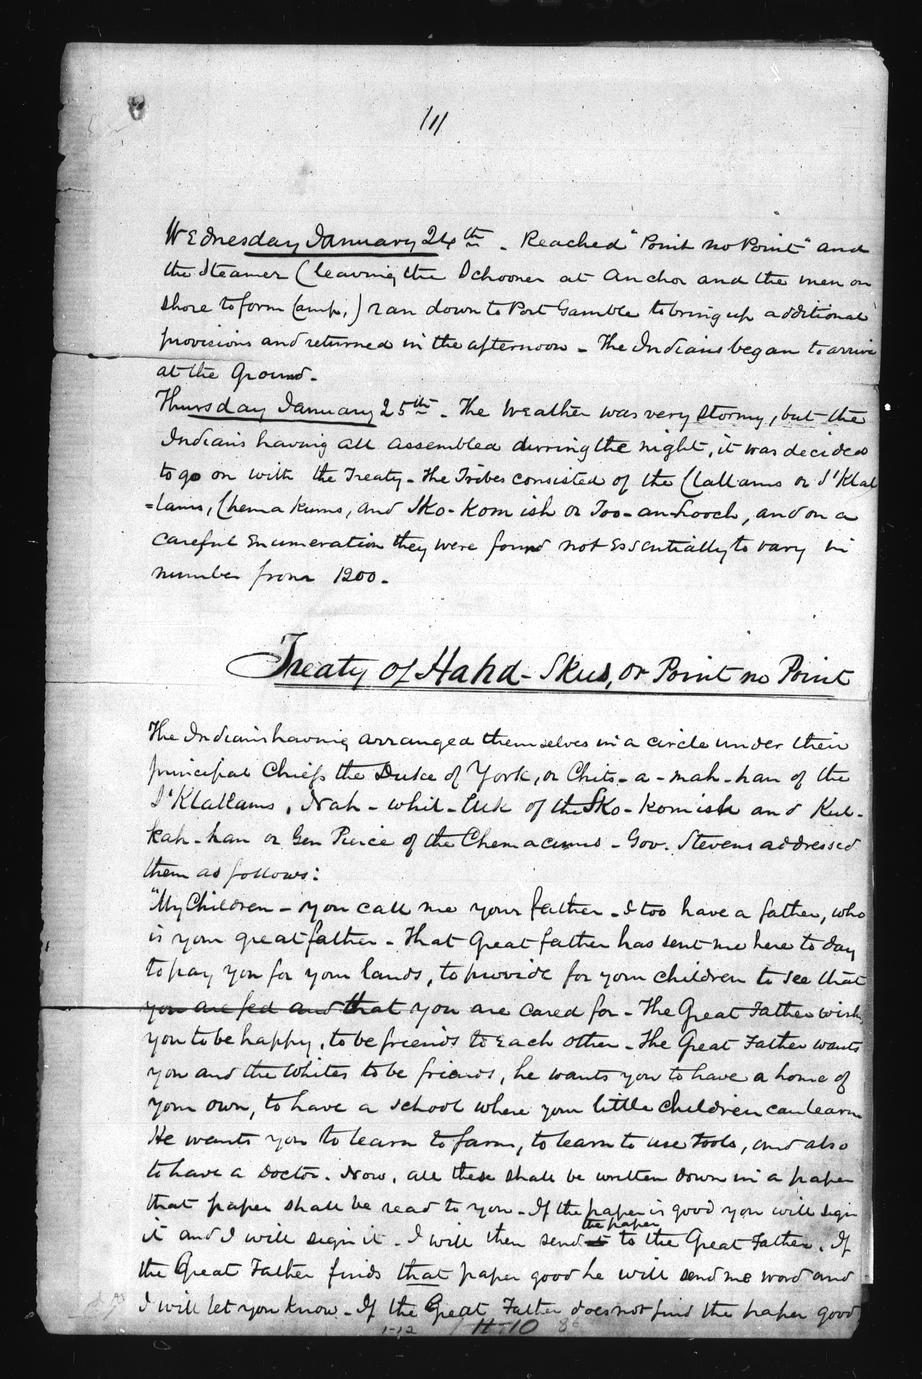 111
Wednesday January 24th. Reached "Point no Point" and
the Steamer (leaving the Schooner at Anchor and the men on
shore to form Camp,) ran down to Port Gamble to bring up additional
provisions and returned in the afternoon - The Indians began to arrive
at the Ground.
Thursday January 25th. The Weather was very stormy, but the
Indians having all assembled during the night, it was decided
to go on with the Treaty - The Tribes consisted of the Clallams or S'Klal
=lams, Chemakums, and Sko-kom ish or Too-an-hooch, and on a
careful Enumeration they were found not Essentially to vary in
number from 1200.
Treaty of Hahd-Skus, or Point no Point
The Indians having arranged themselves in a circle under their
principal Chiefs the Duke of York, or Chits-a-mah-han of the
S'Klallams, Nah-whil-luk of the Sko-komish and Kul-
kah-han or Gen Pierce of the Chemacums - Gov. Stevens addressed
them as follows:
"My Children - you call me your father - I too have a father, who
is your great father - That Great father has sent me here to day
to pay you for your lands, to provide for your children to see that
you are fed and that you are cared for - The Great Father wish
you to be happy, to be friends to Each other - The Great Father wants
you and the Whites to be friends, he wants you to have a home of
your own, to have a school where your little children can learn
He wants you to learn to farm, to learn to use tools, and also
to have a Doctor. Now, all these shall be written down in a paper
that paper shall be read to you - If the paper is good you will sign
it and I will sign it - I will then send the paper to the Great Father. If
the Great Father finds that paper good he will send me word and
I will let you know - If the Great Father does not find the paper good
1-12 H-10 86